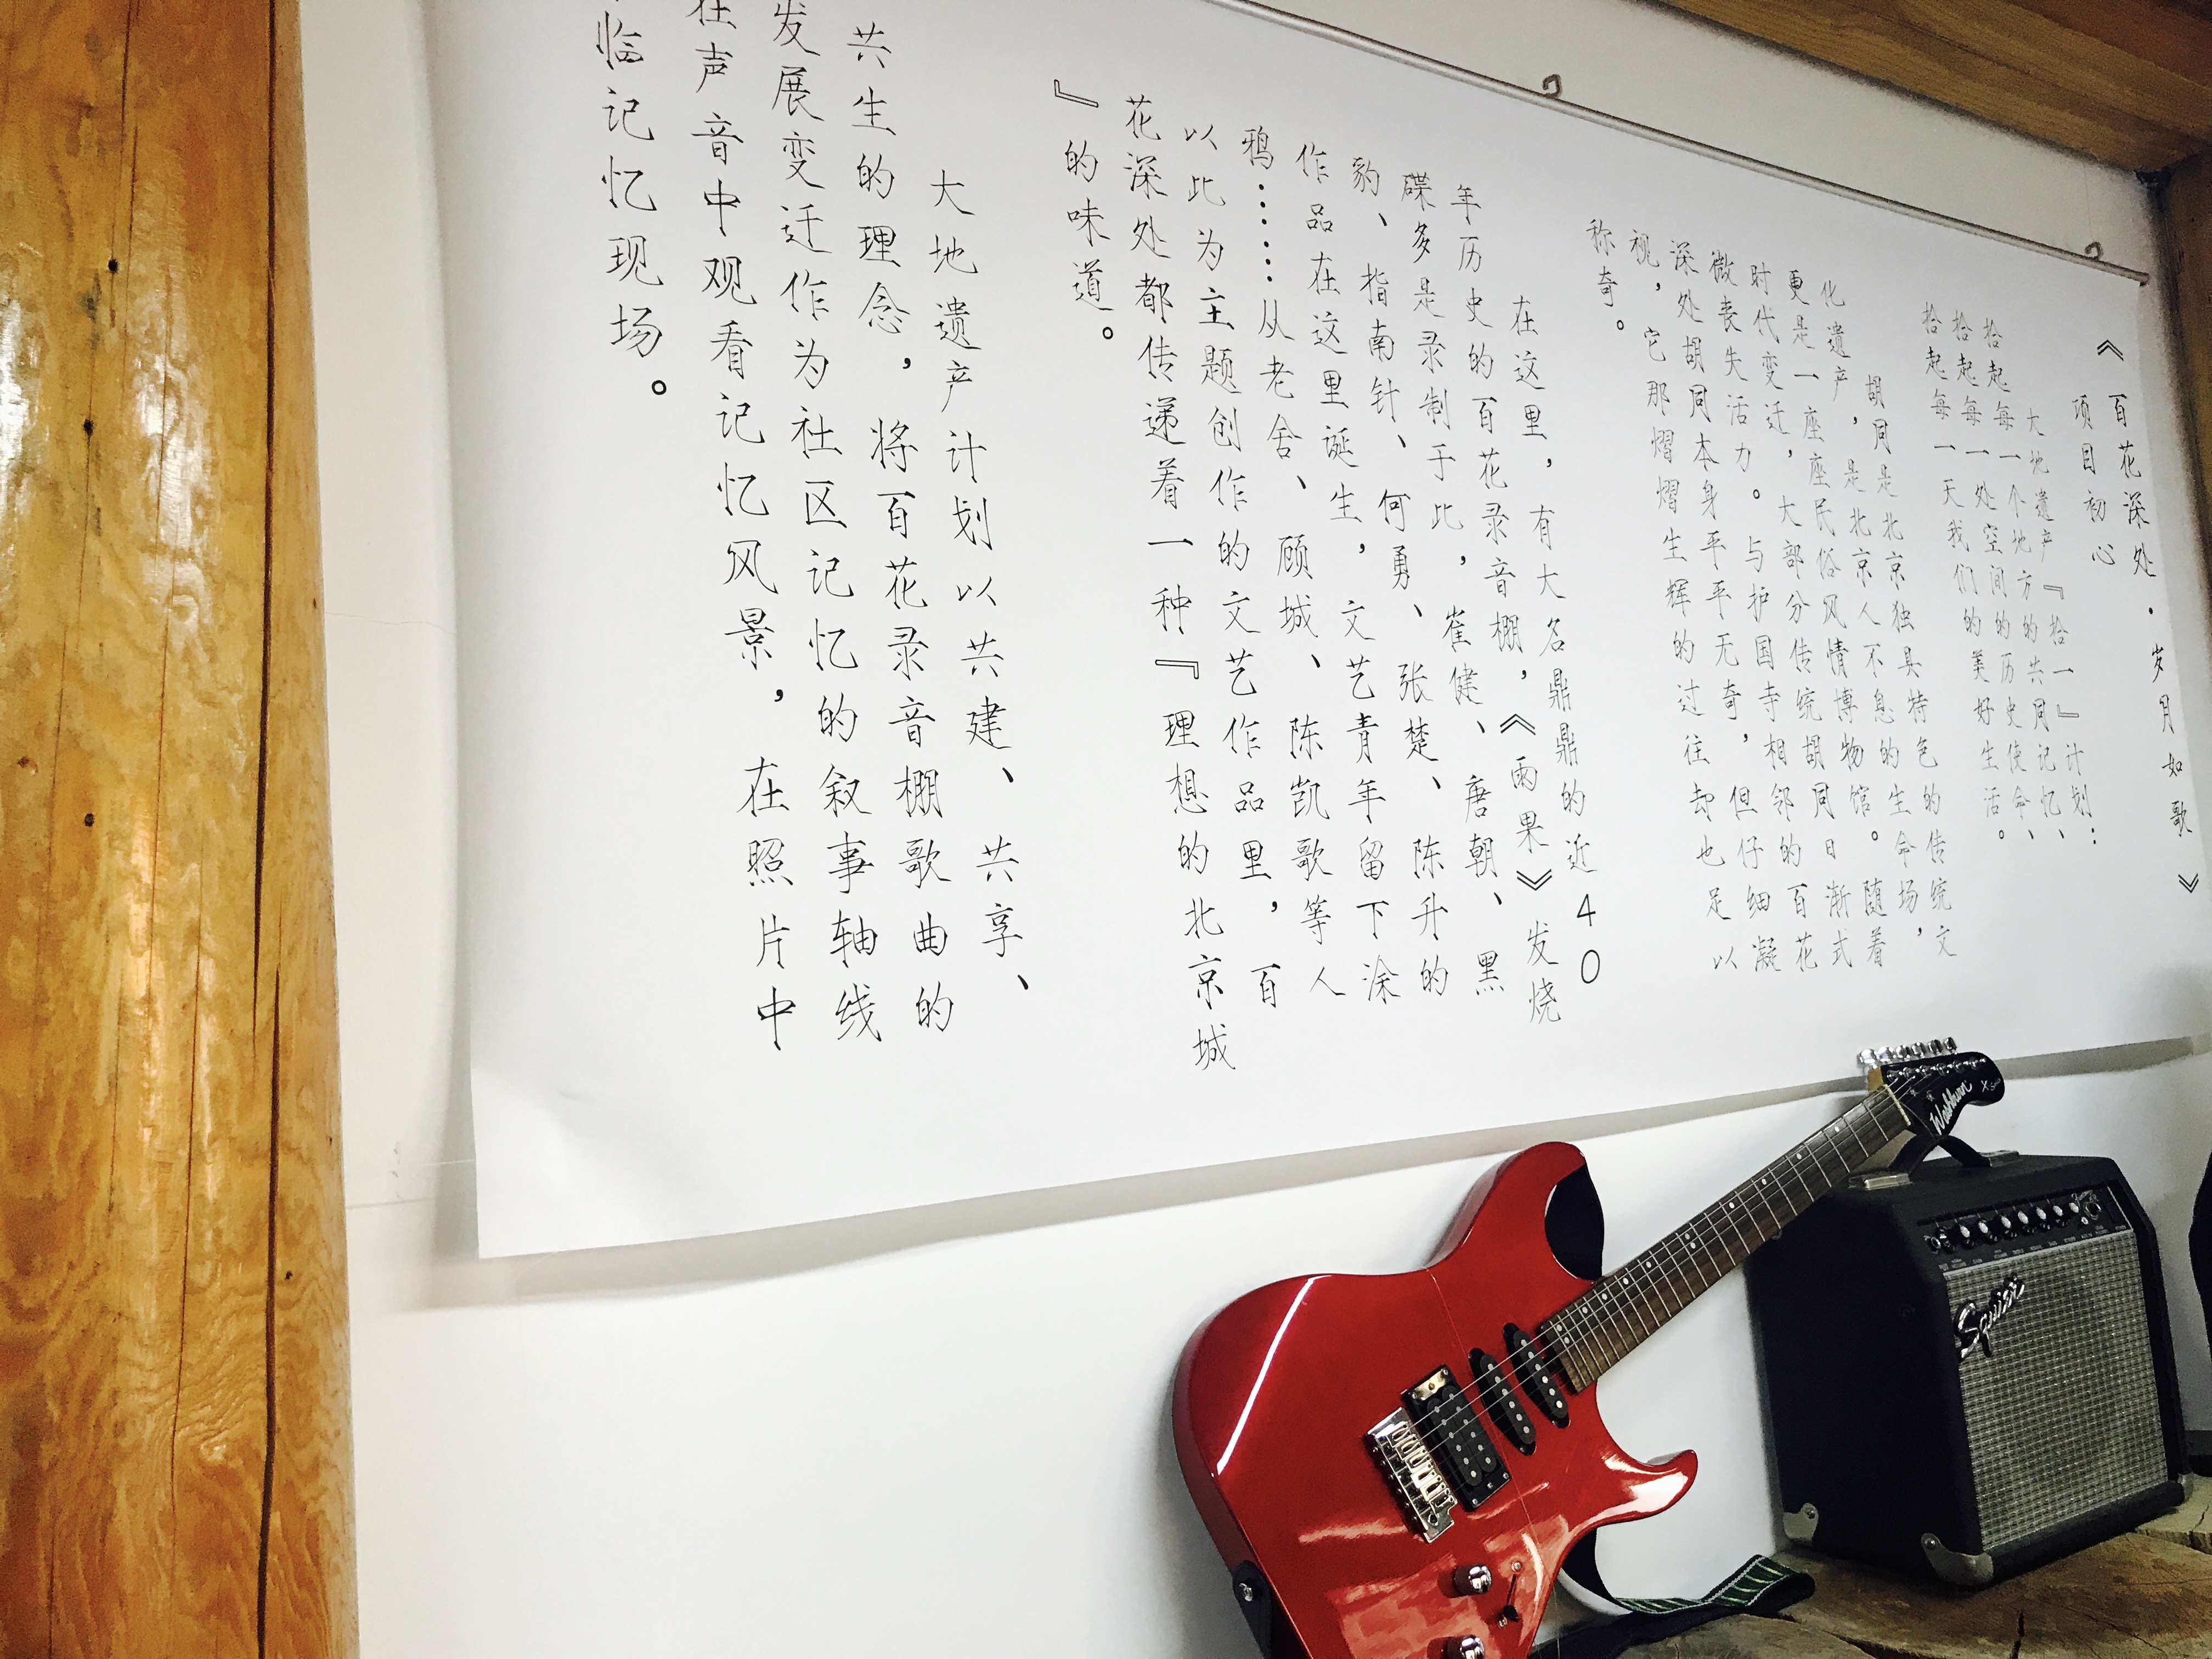 《百花深处·岁月如歌》
项目初心
大地遗产『拾一』计划：
拾起每一个地方的共同记忆、
拾起每一处空间的历史使命、
拾起每一天我们的美好生活。
胡同是北京独具特色的传统文
化遗产，是北京人不息的生命场，
更是一座座民俗风情博物馆。随着
时代变迁，大部分传统胡同日渐式
微丧失活力。与护国寺相邻的百花
深处胡同本身平平无奇，但仔细凝
视，它那熠熠生辉的过往却也足以
称奇。
在这里，有大名鼎鼎的近40
年历史的百花录音棚，《雨果》发烧
碟多是录制于此，崔健、唐朝、黑
豹、指南针、何勇、张楚、陈升的
作品在这里诞生，文艺青年留下涂
鸦……从老舍、顾城、陈凯歌等人
以此为主题创作的文艺作品里，百
花深处都传递着一种『理想的北京城
』的味道。
大地遗产计划以共建、共享、
共生的理念，将百花录音棚歌曲的
发展变迁作为社区记忆的叙事轴线
在声音中观看记忆风景，在照片中
临记忆现场。
Washburn
Squier